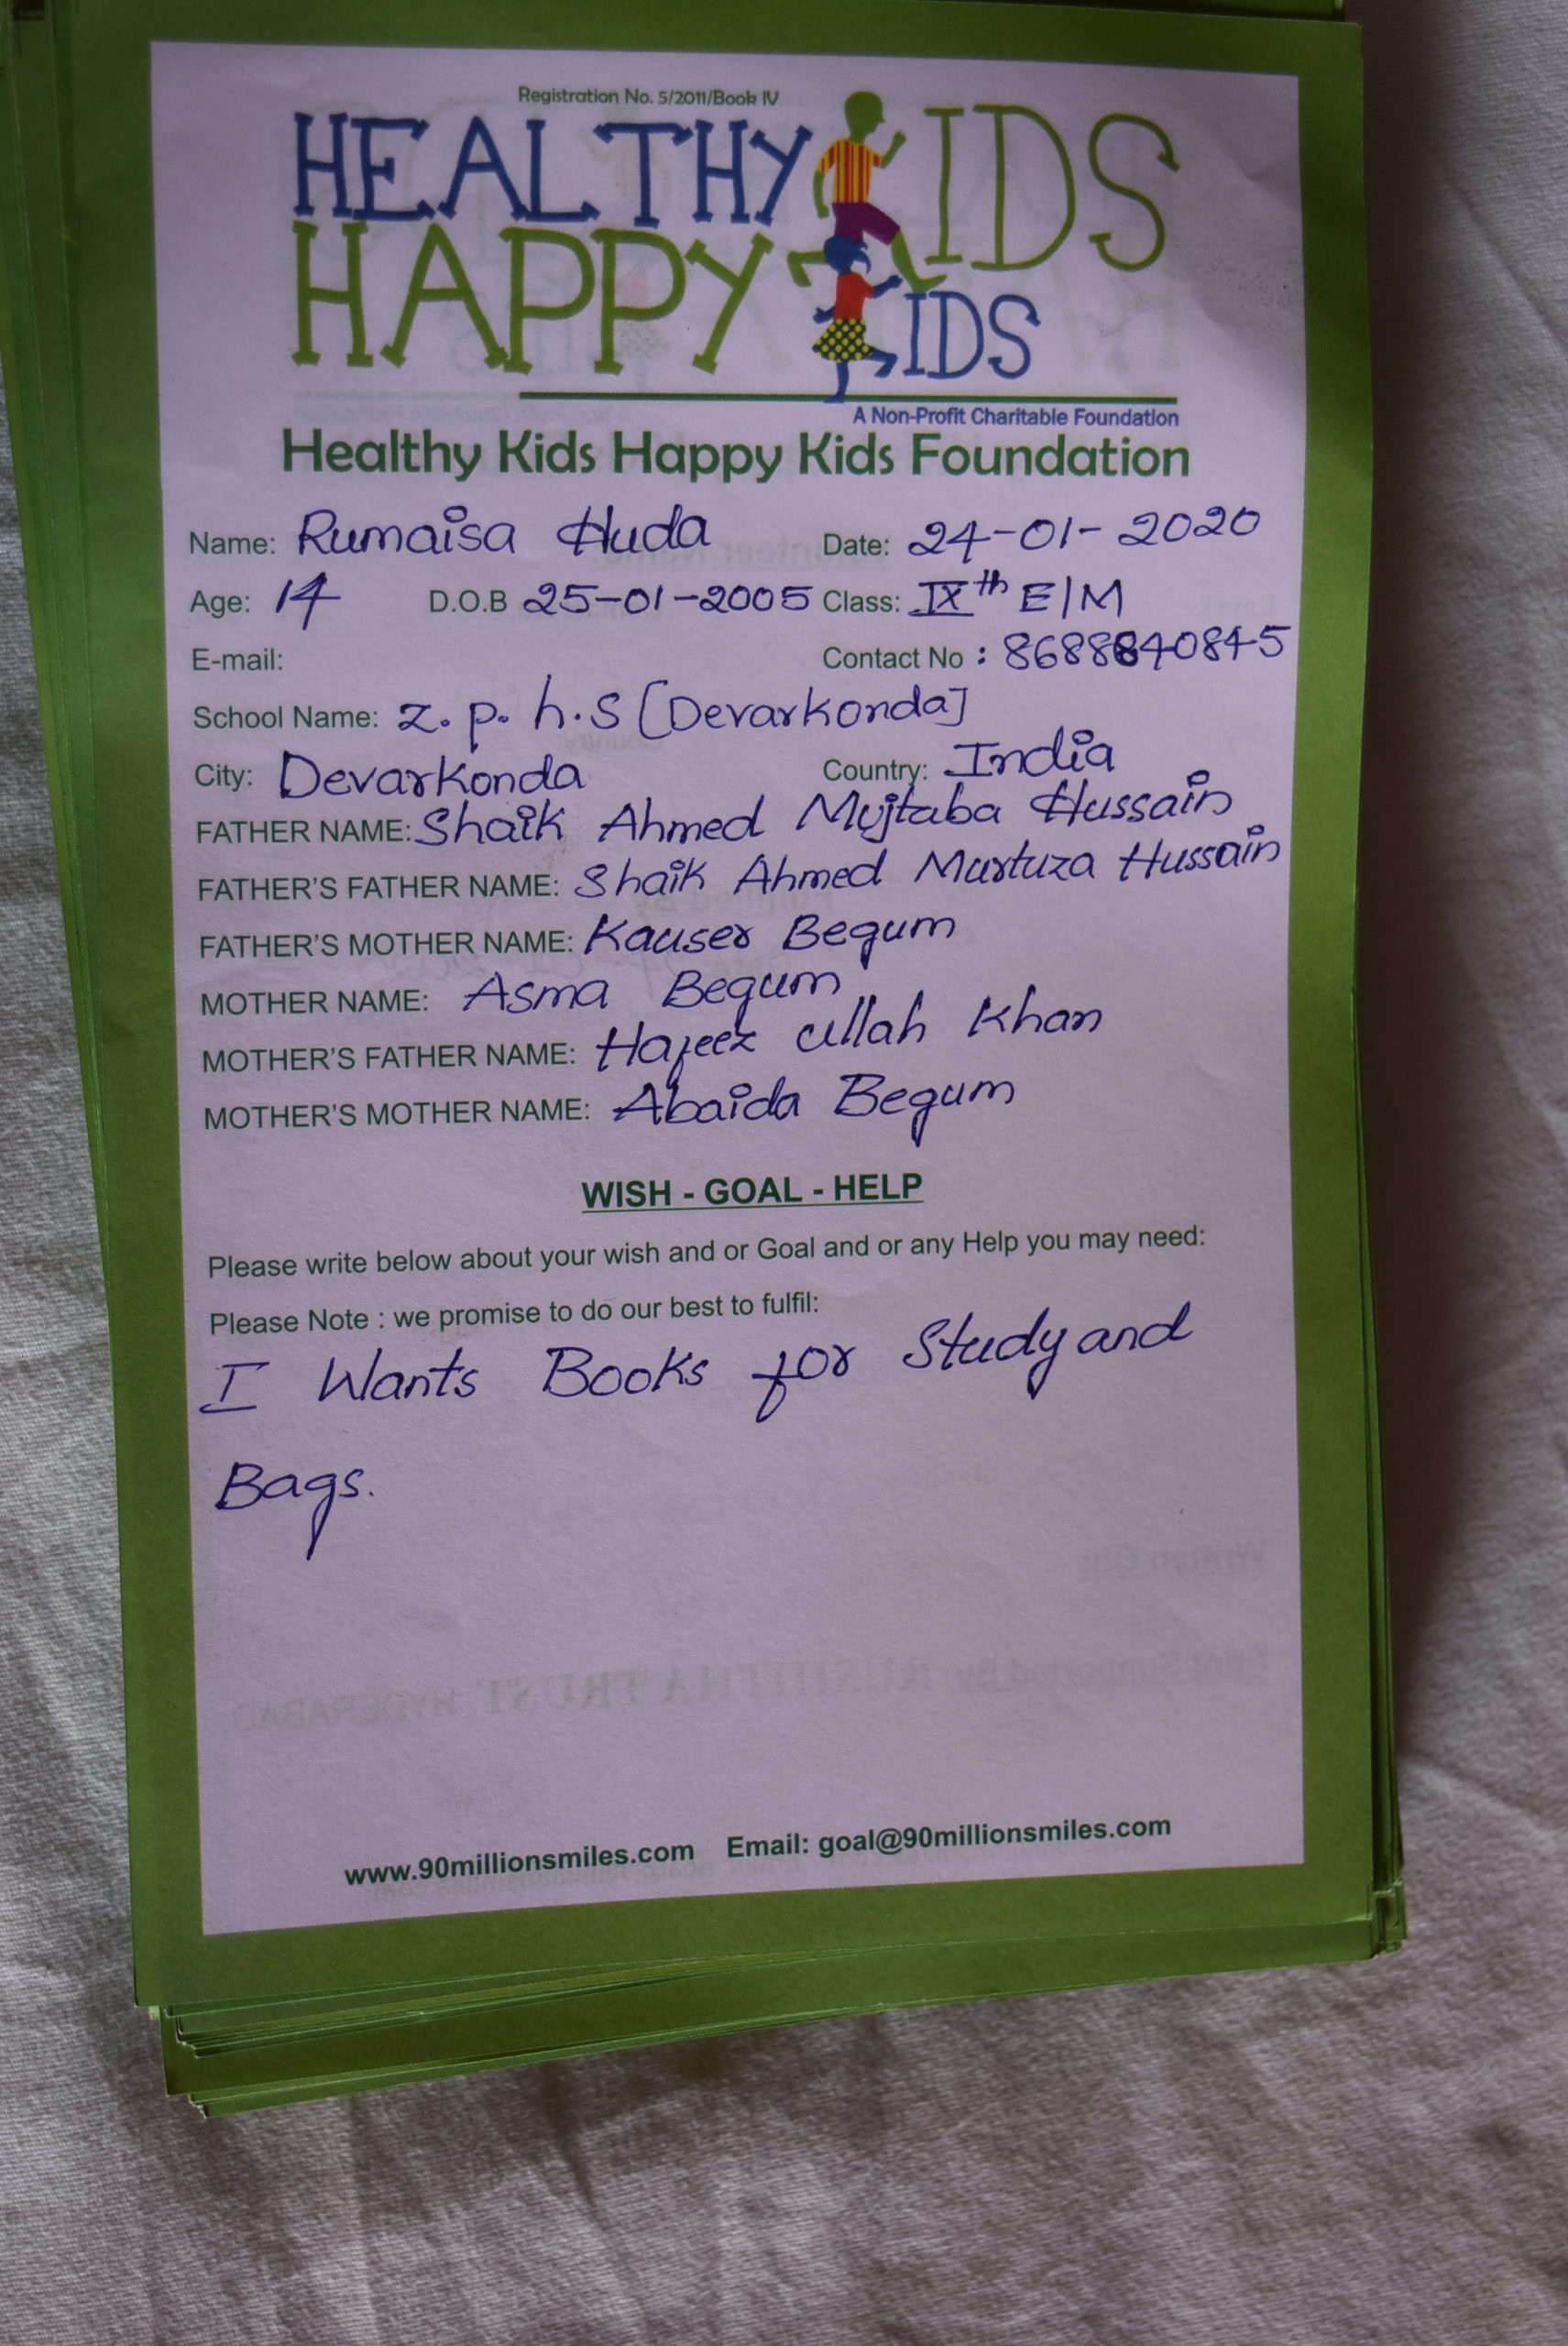 Registration No. 5/2011/Book IV
HEALTHY KIDS
HAPPY KIDS
A Non-Profit Charitable Foundation
Healthy Kids Happy Kids Foundation
Name: Rumaisa Huda Date: 24-01-2020
Age: 14 D.O.B 25-01-2005 Class: IXth E/M
E-mail: Contact No : 8688840845
School Name: z. p. h.s [Devarkonda]
City: Devarkonda Country: India
FATHER NAME: Shaik Ahmed Mujtaba Hussain
FATHER'S FATHER NAME: Shaik Ahmed Murtuza Hussain
FATHER'S MOTHER NAME: Kauser Begum
MOTHER NAME: Asma Begum
MOTHER'S FATHER NAME: Hafeez ullah Khan
MOTHER'S MOTHER NAME: Abaida Begum
WISH - GOAL - HELP
Please write below about your wish and or Goal and or any Help you may need:
Please Note : we promise to do our best to fulfil:
I Wants Books for Study and
Bags.
www.90millionsmiles.com Email: goal@90millionsmiles.com